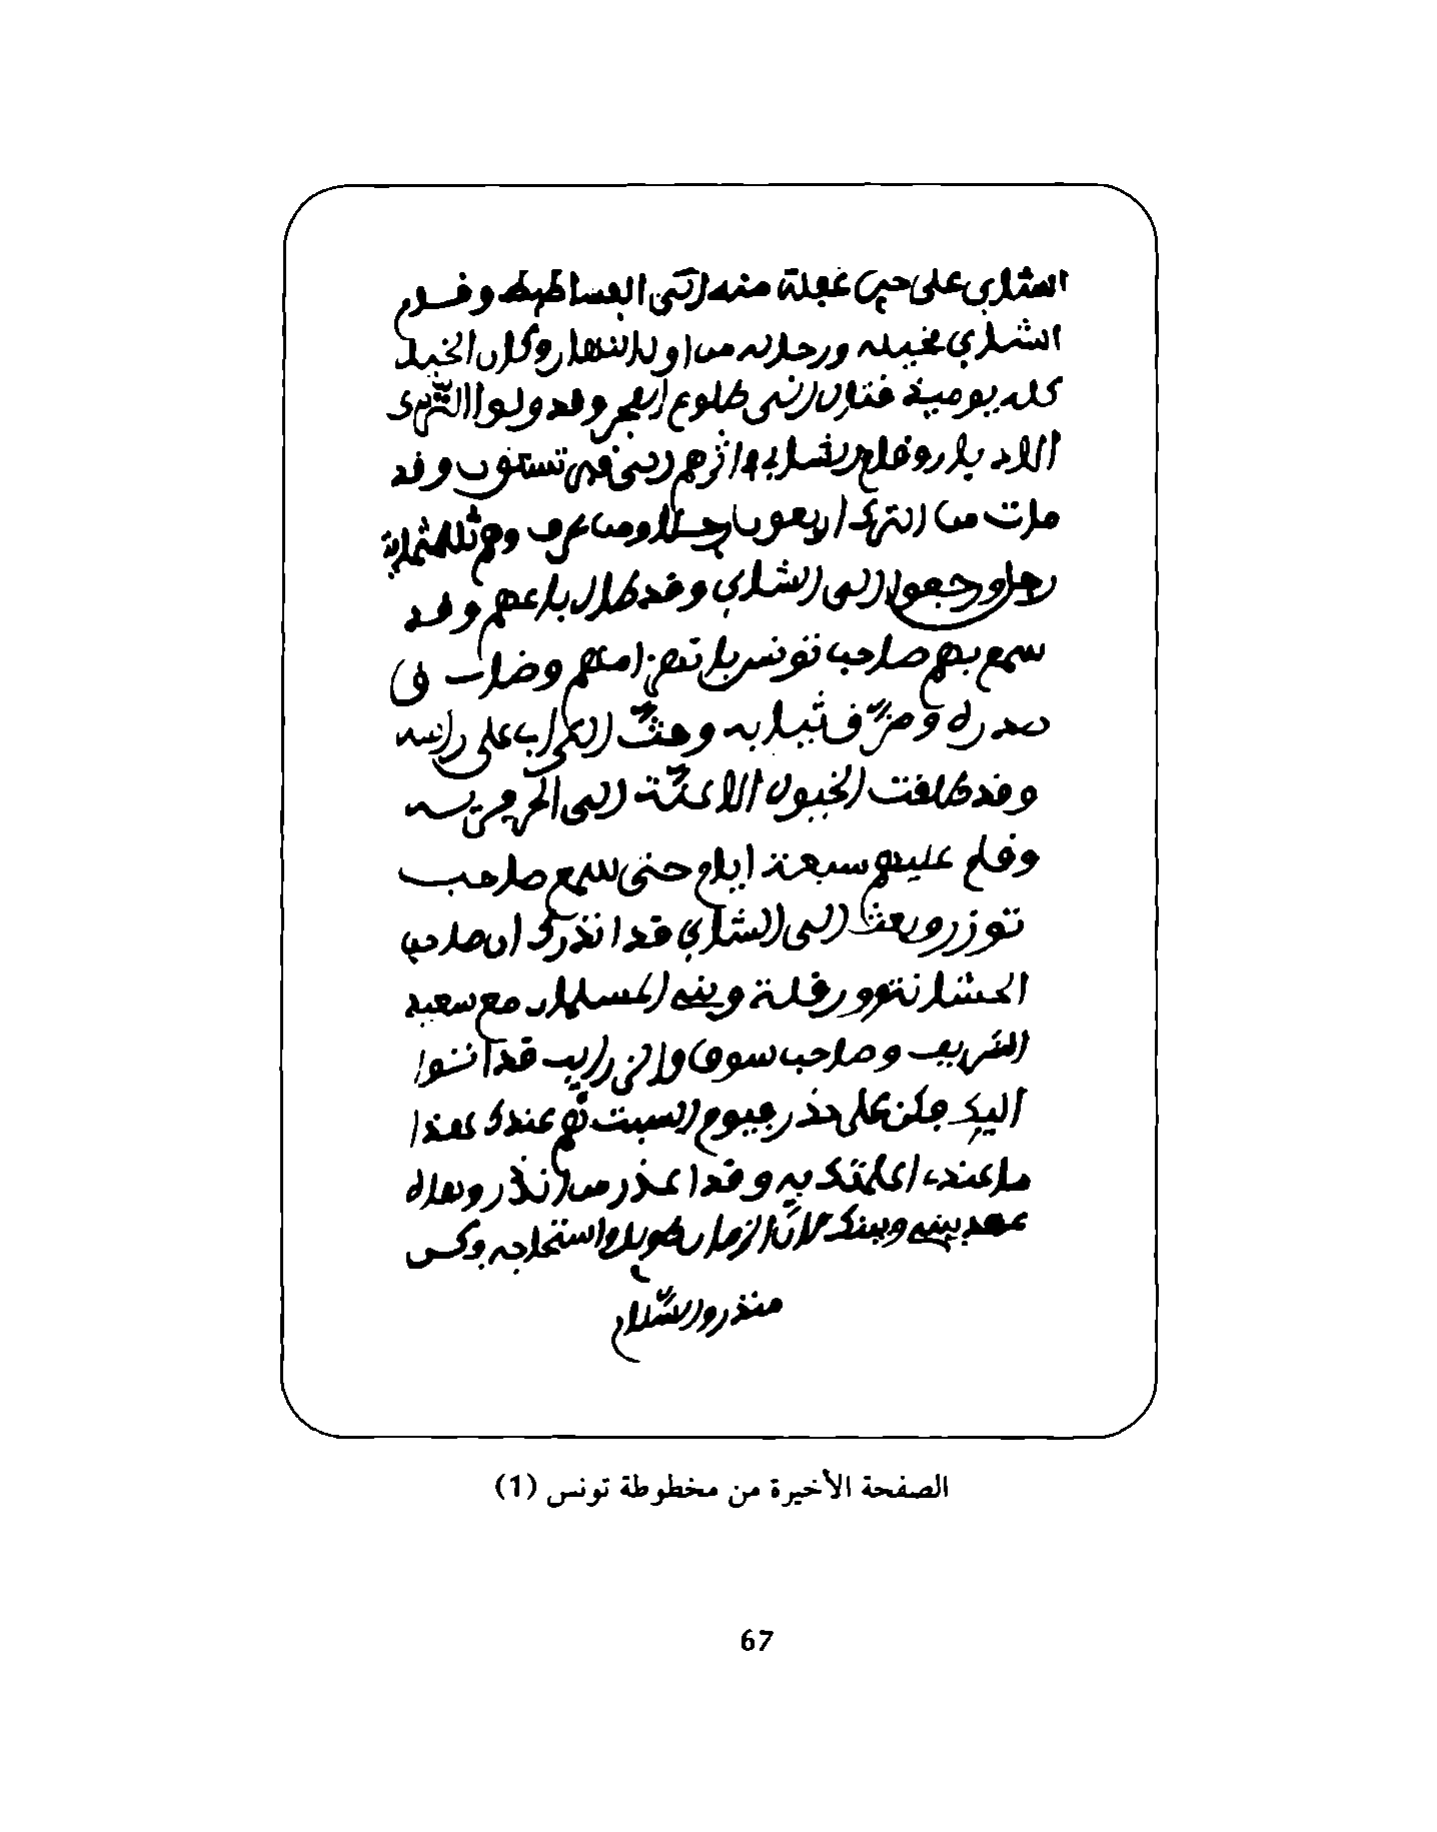 الشابي على حين غفلة منه إلى الفساطيط وقام
الشابي بخيله ورجاله من اول النهار وكان الخيل
كله يومية فتال إلى طلوع الفجر وقد ولوا الترك
الادبار وقام الشابي واثرهم إلى تستور وقد
مات من الترك اربعون رجلا ومن عرف وهم ثلاثماية
رجل ورجعوا إلى الشابي وقد طال باعهم وقد
سمع بهم صاحب تونس بانهزامهم وضاق في
صدره ومزّق ثيابه وحثّ التراب على راسه
وقد طلقت الخيول الاعنّة إلى الحرم
وقام عليهم سبعة ايام حتى سمع صاحب
توزر وبعث إلى الشابي قد انذرك ان صاحب
الخشانة وورقلة وبنى المسلمان مع سعيد
الشريف وصاحب سوف والزرايب قد اتوا
اليك فكن على حذر فيوم السبت هم عندك هذا
ما عندي اعلمتك به وقد اعذر من انذر وهاذه
عهد بيني وبينك لانّ الزمان طويل واستحاجه وكن
منذر والسّلام
الصفحة الأخيرة من مخطوطة تونس (1)
67